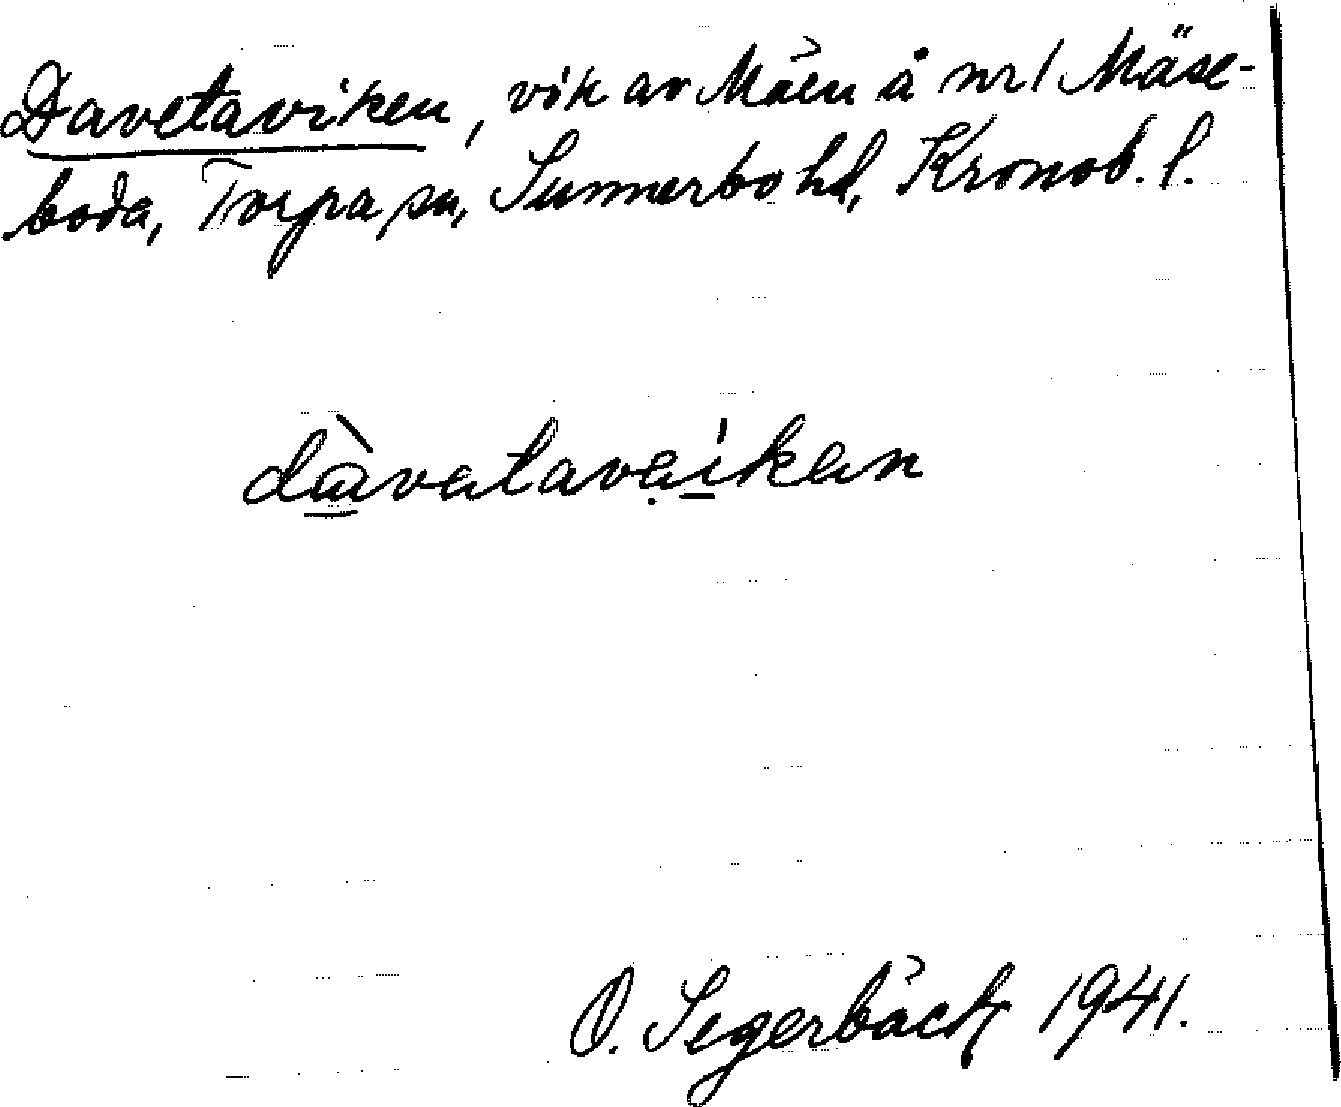 Davetaviken, vik av Mäen å nr 1 Mäse-
boda, Torpa sn, Sunnerbo hd, Kronob. l.
dàvataveíkan
O. Segerbäck 1941.